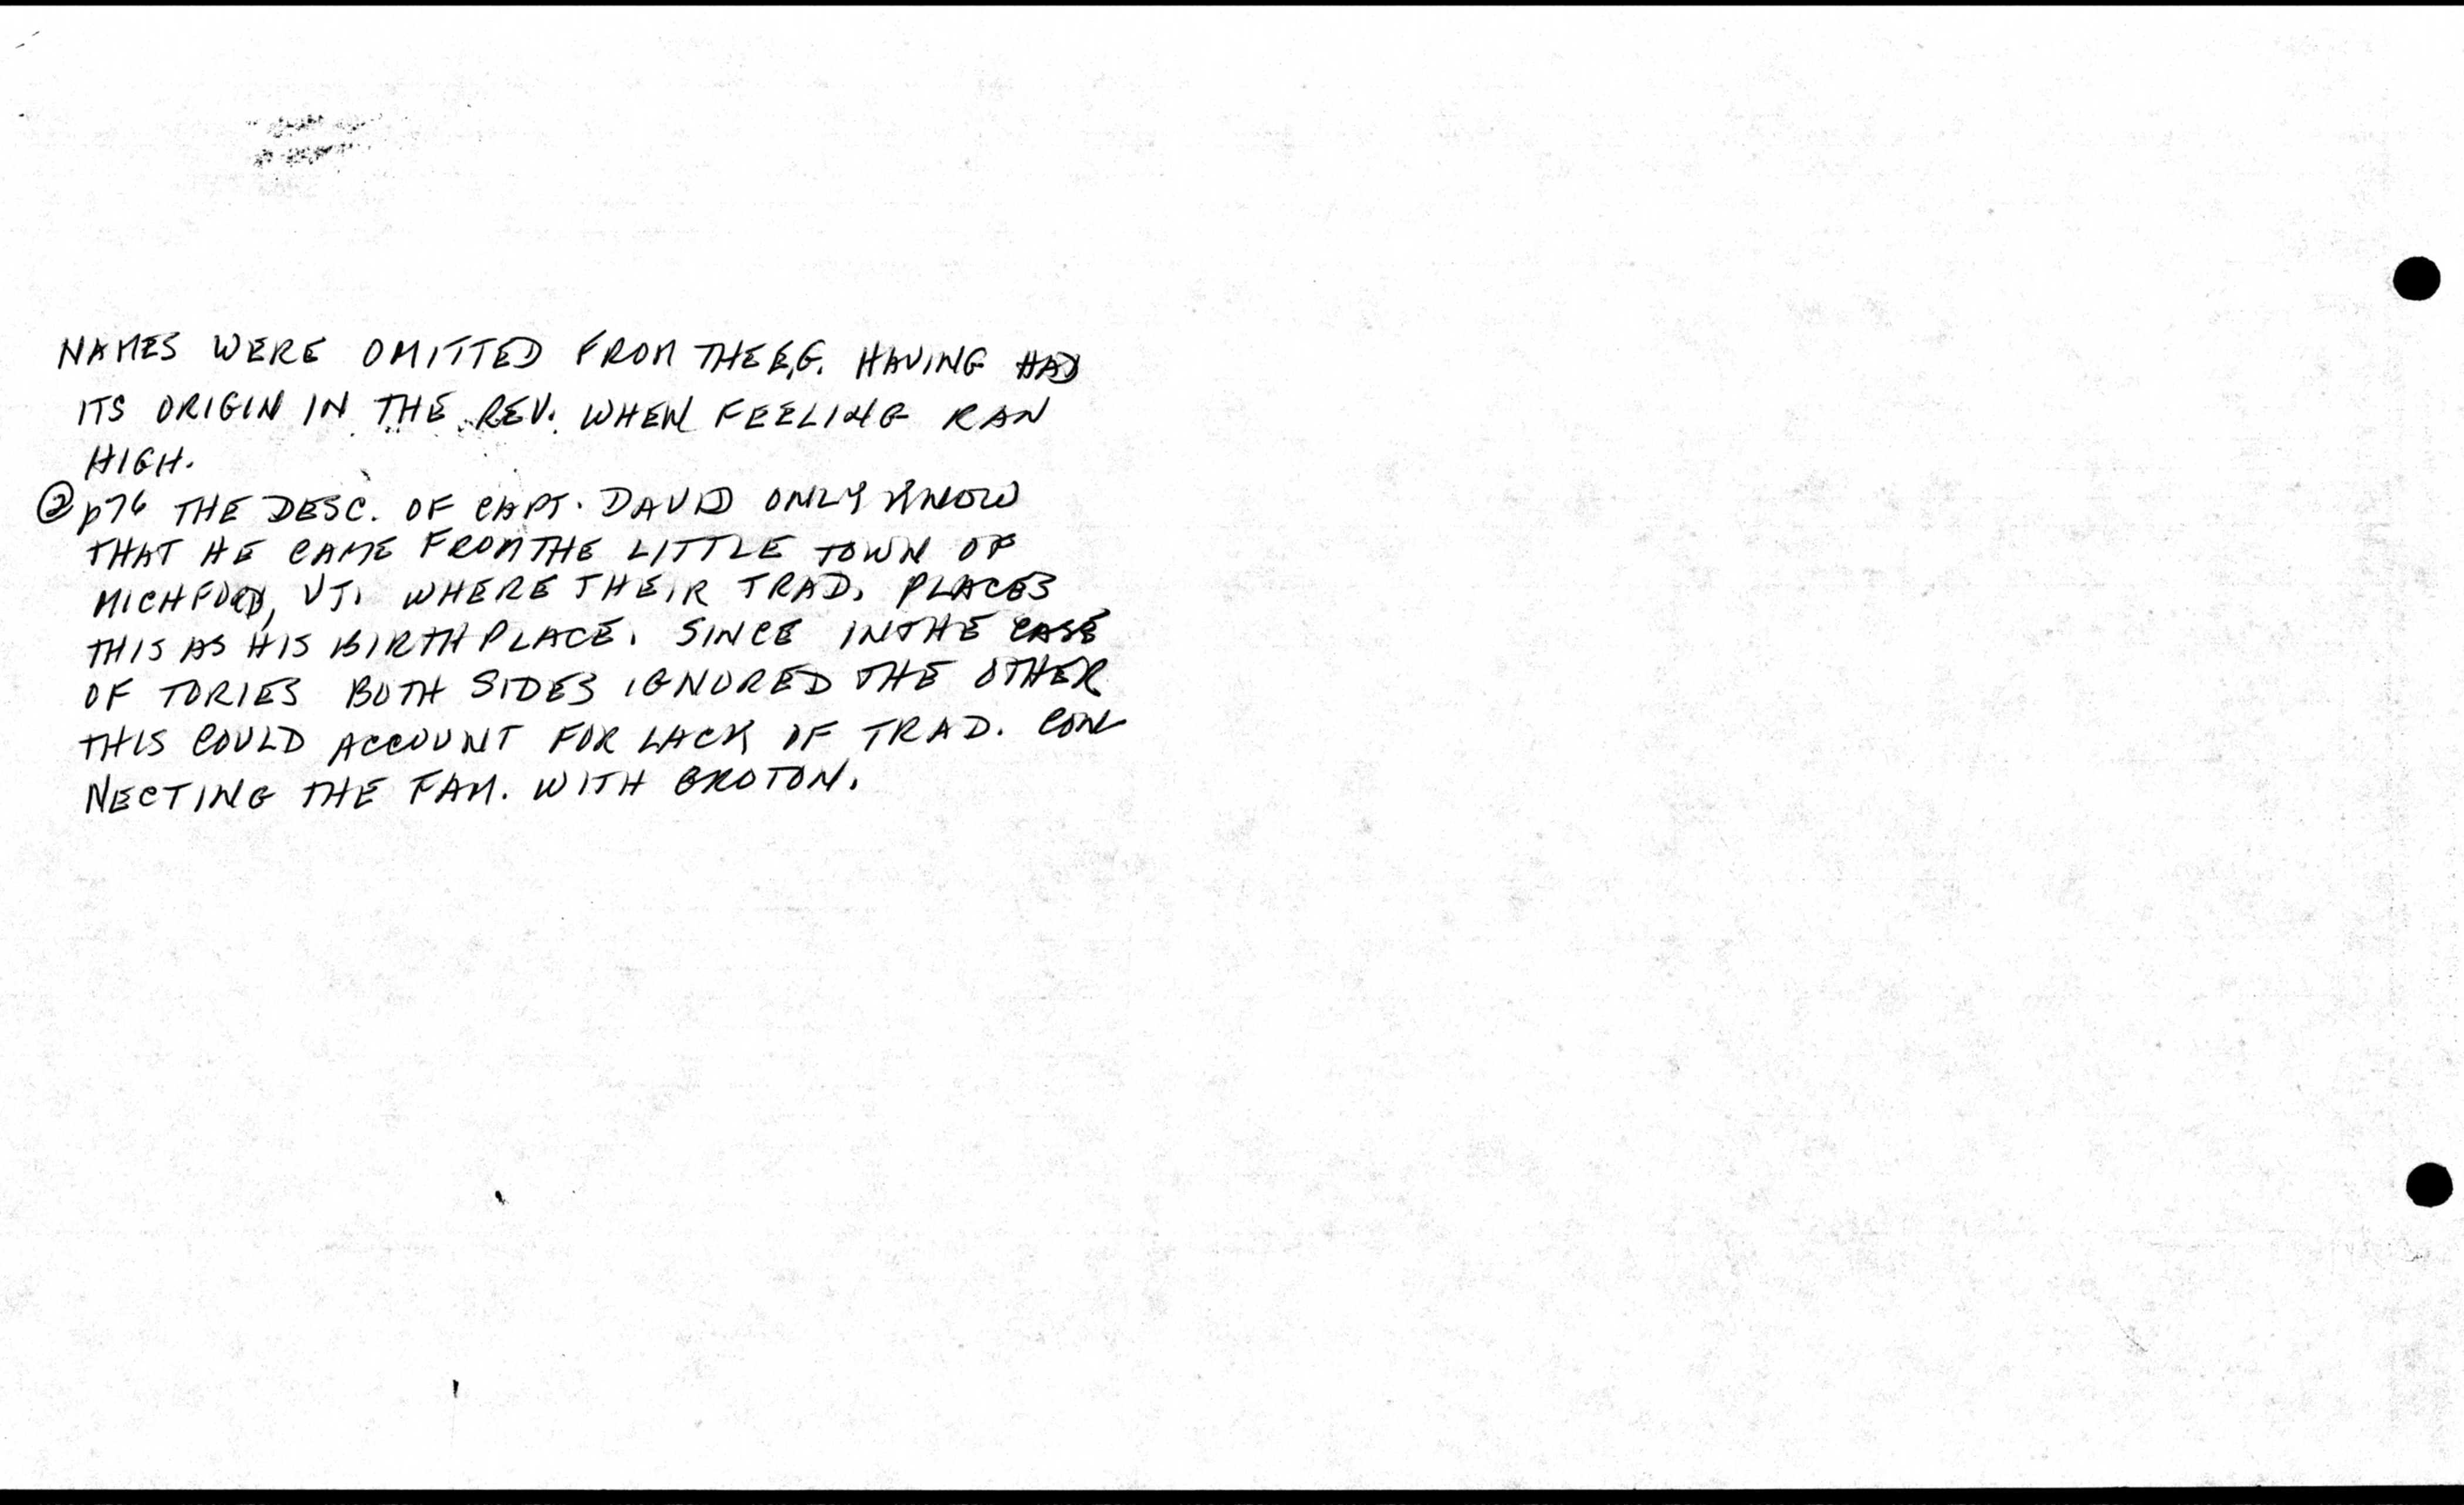 NAMES WERE OMITTED FROM THE E.G. HAVING HAD
ITS ORIGIN IN THE REV. WHEN FEELING RAN
HIGH.
② p76 THE DESC. OF CAPT. DAVID ONLY KNOW
THAT HE CAME FROM THE LITTLE TOWN OF
MICHFORD, VT. WHERE THEIR TRAD. PLACES
THIS AS HIS BIRTHPLACE. SINCE IN THE CASE
OF TORIES BOTH SIDES IGNORED THE OTHER
THIS COULD ACCOUNT FOR LACK OF TRAD. CON
NECTING THE FAM. WITH GROTON.